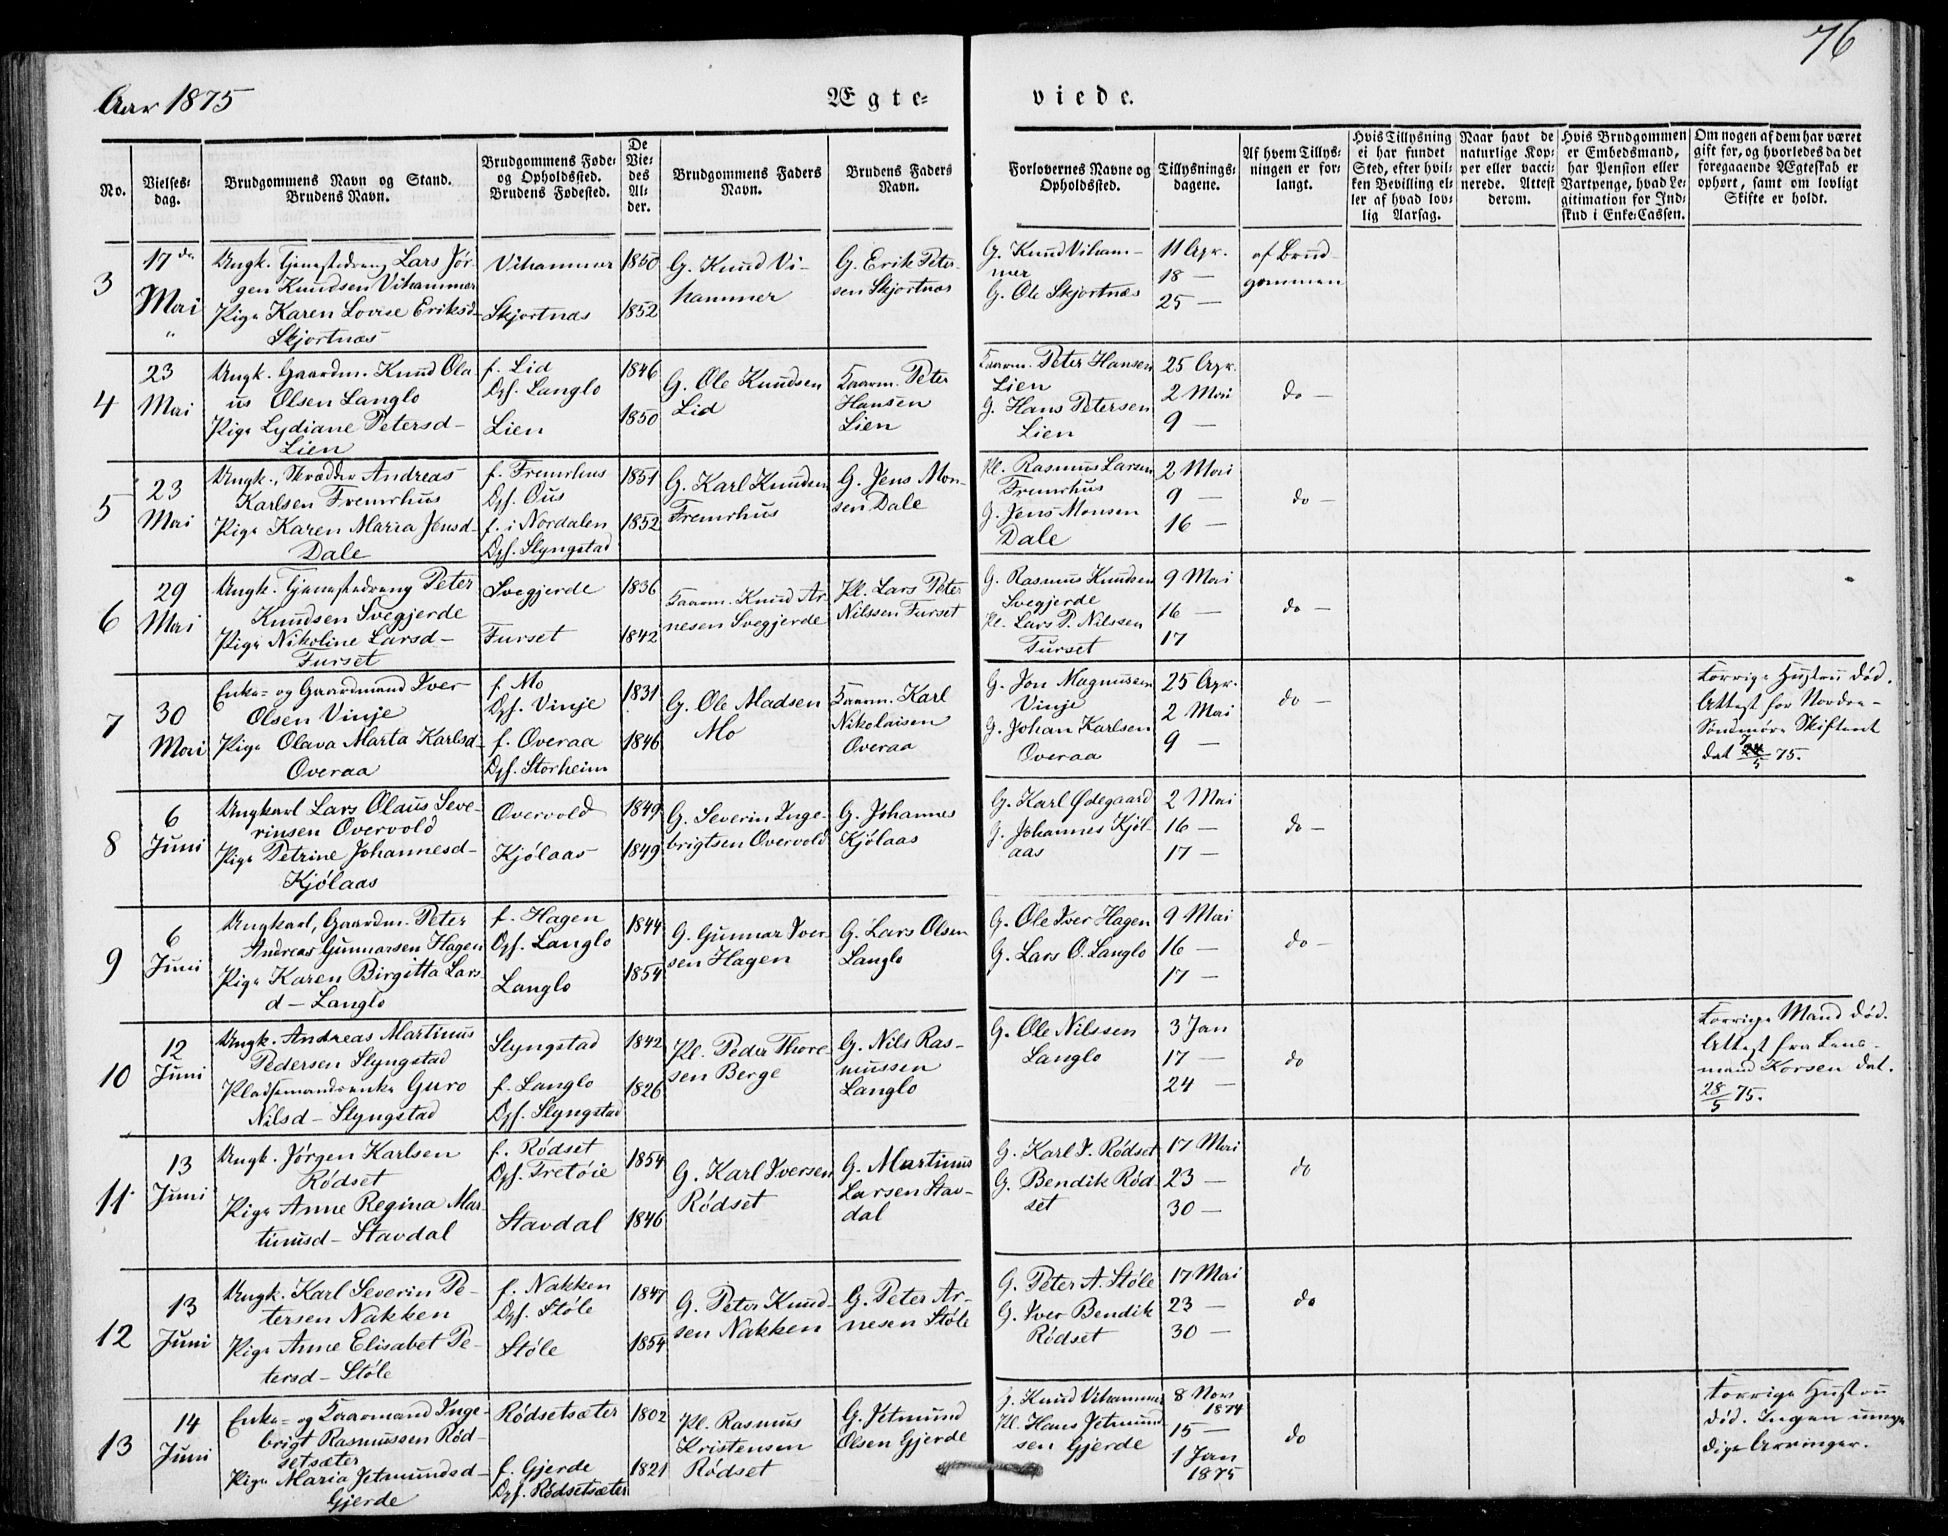 76
Aar 1875
Ægte-
viede.
No.
Vielses-
dag.
Brudgommens Navn og Stand.
Brudens Navn.
Brudgommens Føde-
og Opholdssted.
Brudens Fødested.
De
Vie-
des
Al-
der.
Brudgommens Faders
Navn.
Brudens Faders
Navn.
Forlovernes Navne og
Opholdssted.
Tillysnings-
dagene.
Af hvem Tillys-
ningen er for-
langt.
Hvis Tillysning
ei har fundet
Sted, efter hvil-
ken Bevilling el-
ler af hvad lov-
lig Aarsag.
Naar havt de
naturlige Kop-
per eller vacci-
nerede. Attest
derom.
Hvis Brudgommen
er Embedsmand,
har Pension eller
Vartpenge, hvad Le-
gitimation for Ind-
skud i Enke-Cassen.
Om nogen af dem har været
gift før, og hvorledes da det
foregaaende Ægteskab er
ophørt, samt om lovligt
Skifte er holdt.
3
17de
Mai
"
Ungk. Tjenestedreng Lars Jør-
gen Knudsen Vihammer
Pige Karen Lovise Eriksd-
Skjortnæs
Vihammer
Skjortnæs
1850
1852
G. Knud Vi-
hammer
G. Erik Peter-
sen Skjortnæs
G. Knud Viham-
mer
G. Ole Skjortnæs
11 Apr.
18 —
25 —
af Brud-
gommen
4
23
Mai
Ungk. Gaardm. Knud Ola-
us Olsen Langlo
Pige Lydiane Petersd-
Lien
f. Lid
Opf. Langlo
Lien
1846
1850
G. Ole Knudsen
Lid
Kaarm. Peter
Hansen
Lien
Kaarm. Peter Hansen
Lien
G. Hans Petersen
Lien
25 Apr.
2 Mai
9 —
do —
5
23
Mai
Ungk., Skrædder Andreas
Karlsen Fremrhus
Pige Karen Maria Jensd-
Dale
f. Fremrhus
Opf. Ous
f. i Nordalen
Opf. Slyngstad
1851
1852
G. Karl Knudsen
Fremrhus
G. Jens Mon-
sen Dale
Pl. Rasmus Larsen
Fremrhus
G. Jens Monsen
Dale
2 Mai
9 —
16 —
do —
6
29
Mai
Ungk. Tjenestedreng Peter
Knudsen Svegjerde
Pige Nikoline Larsd-
Furset
Svegjerde
Furset
1836
1842
Kaarm. Knud Ar-
nesen Svegjerde
Pl. Lars Peter
Nilssen Furset
G. Rasmus Knudsen
Svegjerde
Pl. Lars P. Nilssen
Furset
9 Mai
16 —
17
do —
7
30
Mai
Enke- og Gaardmand Iver
Olsen Vinje
Pige Olava Marta Karlsd-
Overaa
f. Mo
Opf. Vinje
f. Overaa
Opf. Storheim
1831
1846
G. Ole Madsen
Mo
Kaarm. Karl
Nikolaisen
Overaa
G. Jon Magnussen
Vinje
G. Johan Karlsen
Overaa
25 Apr.
2 Mai
9 —
do —
Forrige Hustru død.
Attest for Nordre-
Søndmøre Skifteret
dat /5 75.
8
6
Juni
Ungkarl Lars Olaus Seve-
rinsen Overvold
Pige Petrine Johannesd-
Kjølaas
Overvold
Kjølaas
1849
1849
G. Severin Inge-
brigtsen Overvold
G. Johannes
Kjølaas
G. Karl Ødegaard
G. Johannes Kjøl-
aas
2 Mai
16 —
17 —
do —
9
6
Juni
Ungkarl, Gaardm. Peter
Andreas Gunnarsen Hagen
Pige Karen Birgitta Lars
d- Langlo
f. Hagen
Opf. Langlo
Langlo
1844
1854
G. Gunnar Iver-
sen Hagen
G. Lars Olsen
Langlo
G. Ole Iver Hagen
G. Lars O. Langlo
9 Mai
16 —
17 —
do —
10
12
Juni
Ungk. Andreas Martinus
Pedersen Slyngstad
Pladsemandsenke Guro
Nilsd- Slyngstad
Slyngstad
f. Langlo
Opf. Slyngstad
1842
1826
Pl. Peder Thore-
sen Berge
G. Nils Ras-
mussen
Langlo
G. Ole Nilssen
Langlo
3 Jan
17 —
24 —
do
Forrige Mand død.
Attest fra Lens-
mand Korsen dat.
28/5 75.
11
13
Juni
Ungk. Jørgen Karlsen
Rødset
Pige Anne Regina Mar-
tinusd- Stavdal
f. Rødset
Opf. Fretøie
Stavdal
1854
1846
G. Karl Iversen
Rødset
G. Martinus
Larsen Stav-
dal
G. Karl I. Rødset
G. Bendik Rød-
set
17 Mai
23 —
30 —
do
12
13
Juni
Ungk. Karl Severin Pe-
tersen Nakken
Pige Anne Elisabet Pe-
tersd- Støle
f. Nakken
Opf. Støle
Støle
1847
1854
G. Peter Knud-
sen Nakken
G. Peter Ar-
nesen Støle
G. Peter A. Støle
G. Iver Bendik
Rødset
17 Mai
23 —
30 —
do
13
14
Juni
Enke- og Kaarmand Inge-
brigt Rasmussen Rød-
setsæter
Pige Maria Jetmundsd-
Gjerde
Rødsetsæter
f. Gjerde
Opf. Rødsetsæter
1802
1821
Pl. Rasmus
Kristensen
Rødset
G. Jetmund
Olsen Gjerde
G. Knud Vihammer
Pl. Hans Jetmund-
sen Gjerde
8 Nov
1874
15 —
1 Jan
1875
do
Forrige Hustru
død. Ingen umyn
dige Arvinger.